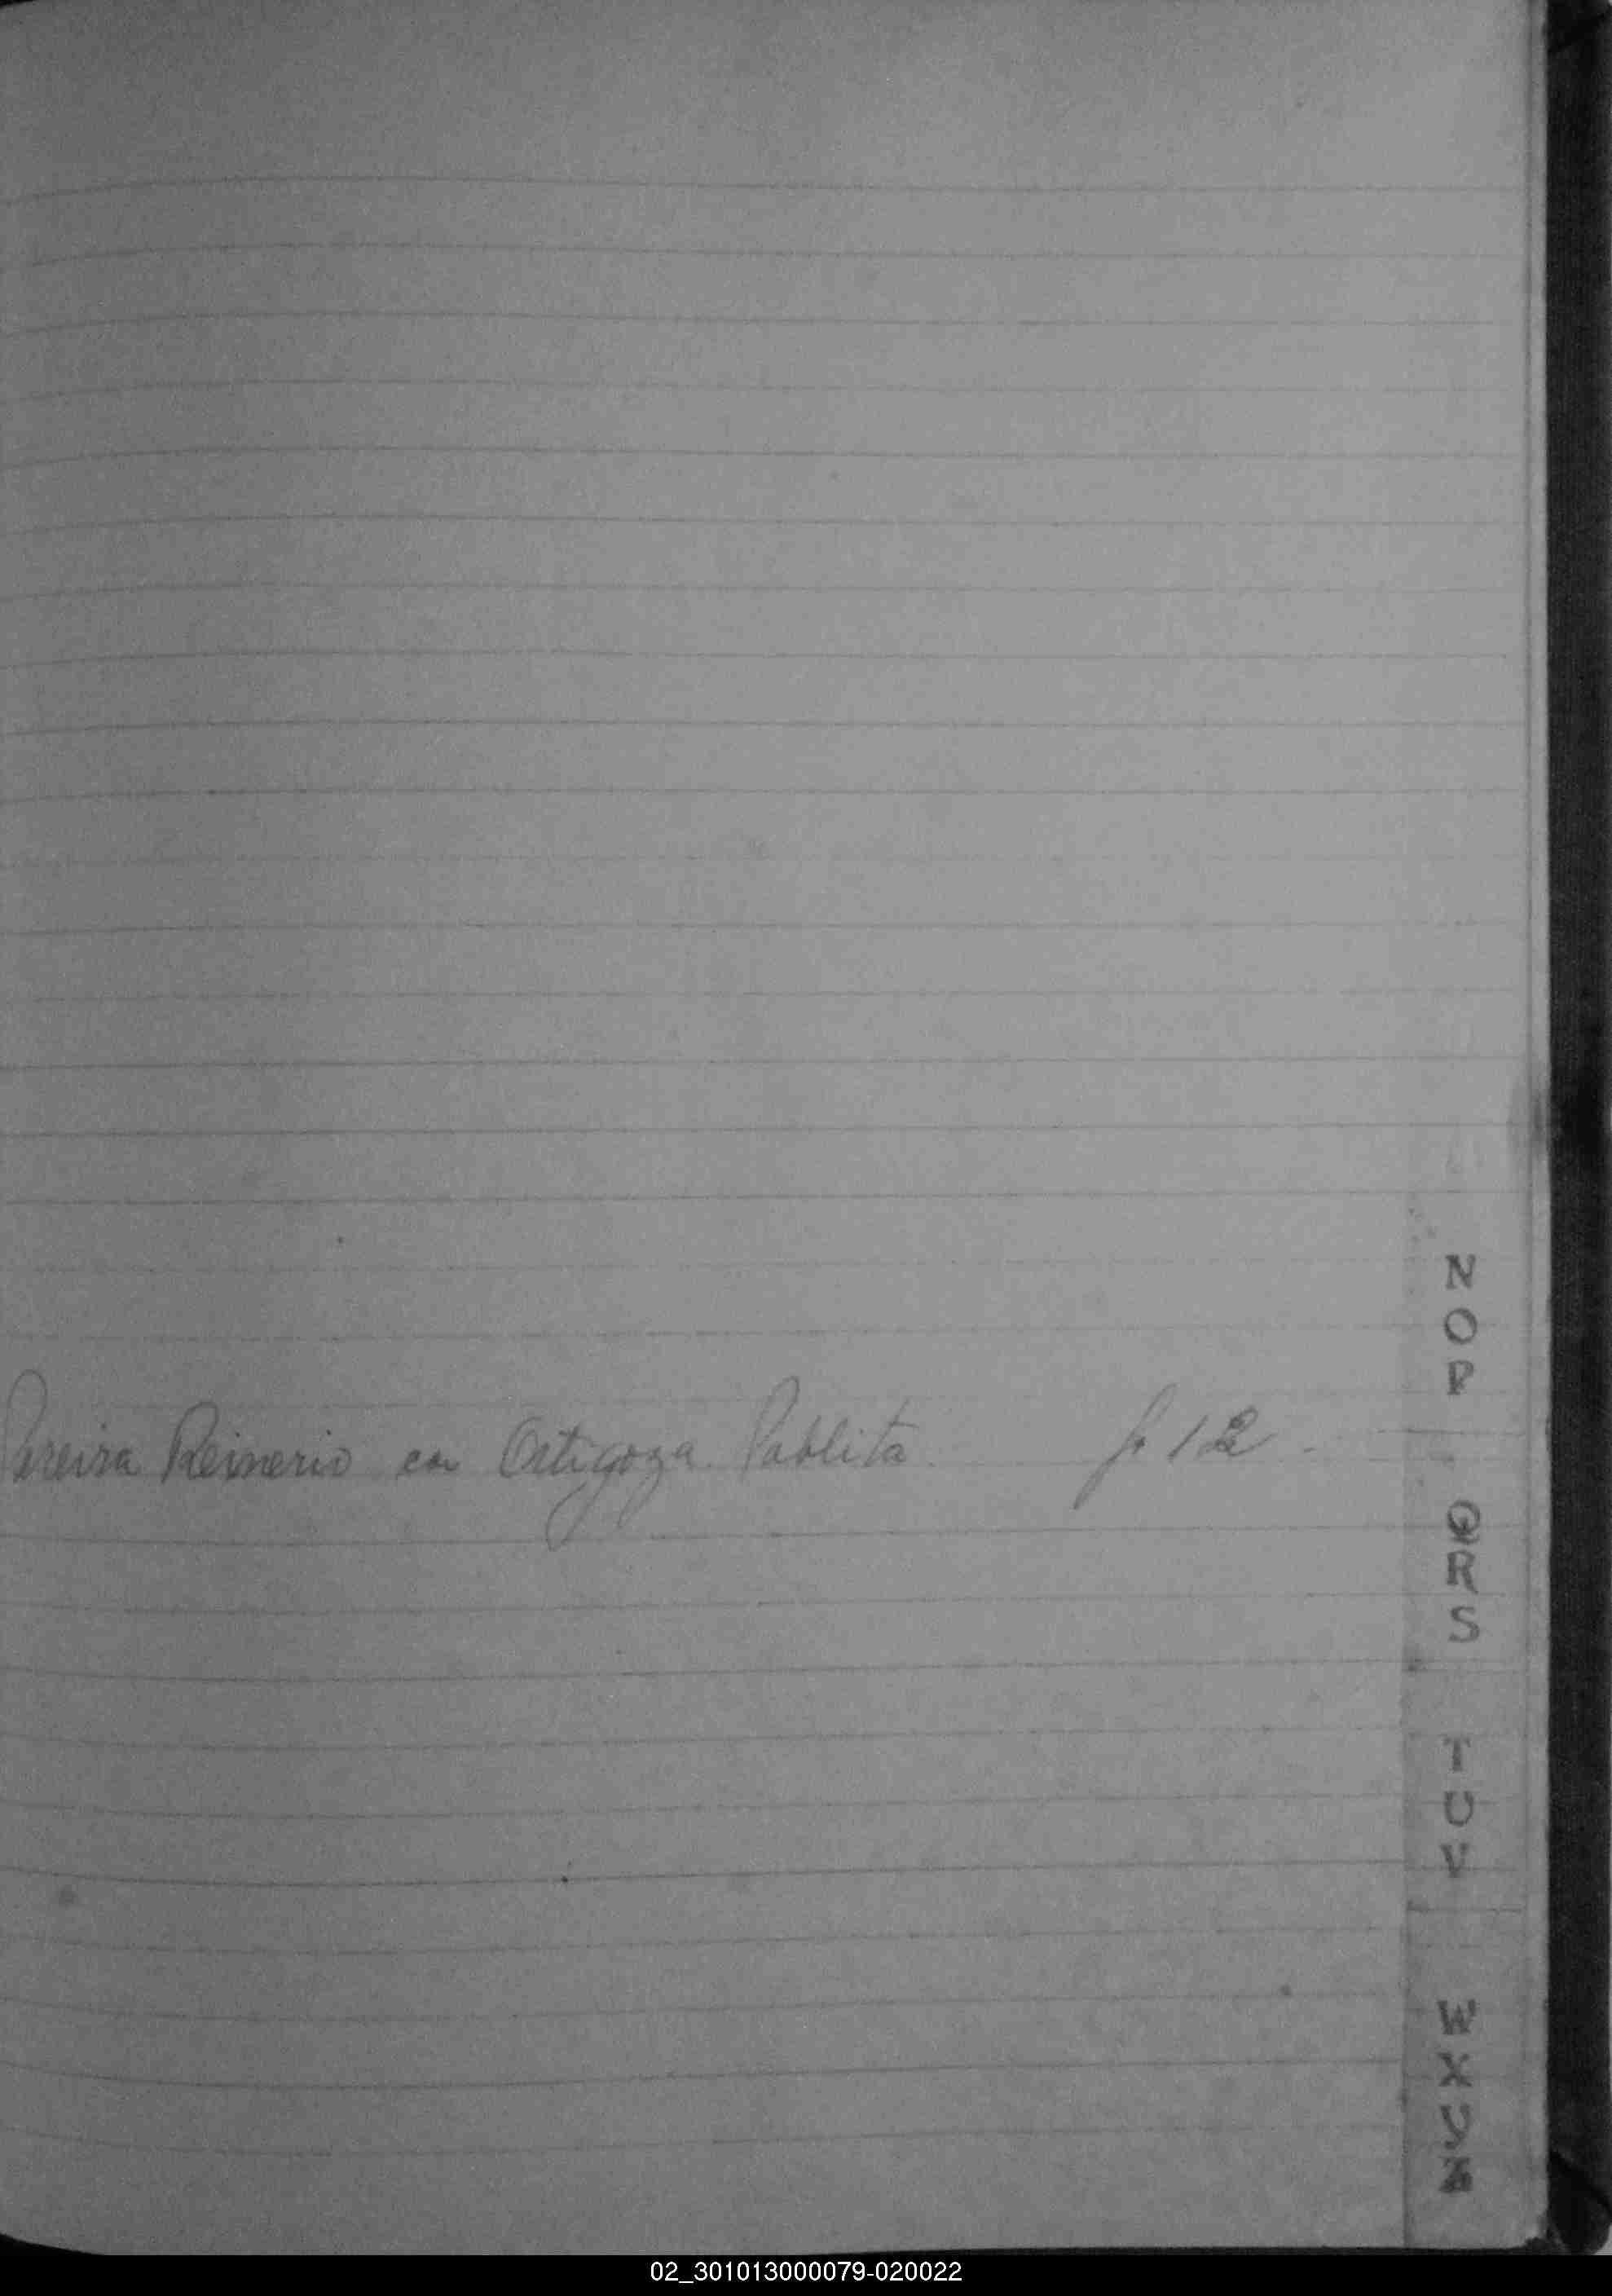 Pereira Reinerio con Ortigoza Pablita. fo 12.
N
O
P
Q
R
S
T
U
V
W
X
Y
Z
02_301013000079-020022